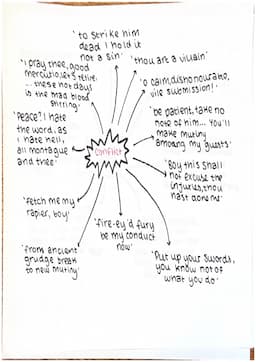 'to strike him
dead I hold it
not a sin'
'thou art a villain'
'I pray thee, good
mercutio, let's retire
... these hot days
is the mad blood
stirring'
'O calm, dishonourable,
vile submission!'
'Peace? I hate
the word, as
I hate hell,
all montague
and thee'
'be patient, take no
note of him... You'll
make mutiny
among my guests'
conflict
'Boy this shall
not excuse the
injuries, thou
hast done me'
'fetch me my
rapier, boy'
'fire-ey'd fury
be my conduct
now'
'from ancient
grudge break
to new mutiny'
'Put up your swords,
you know not of
what you do'